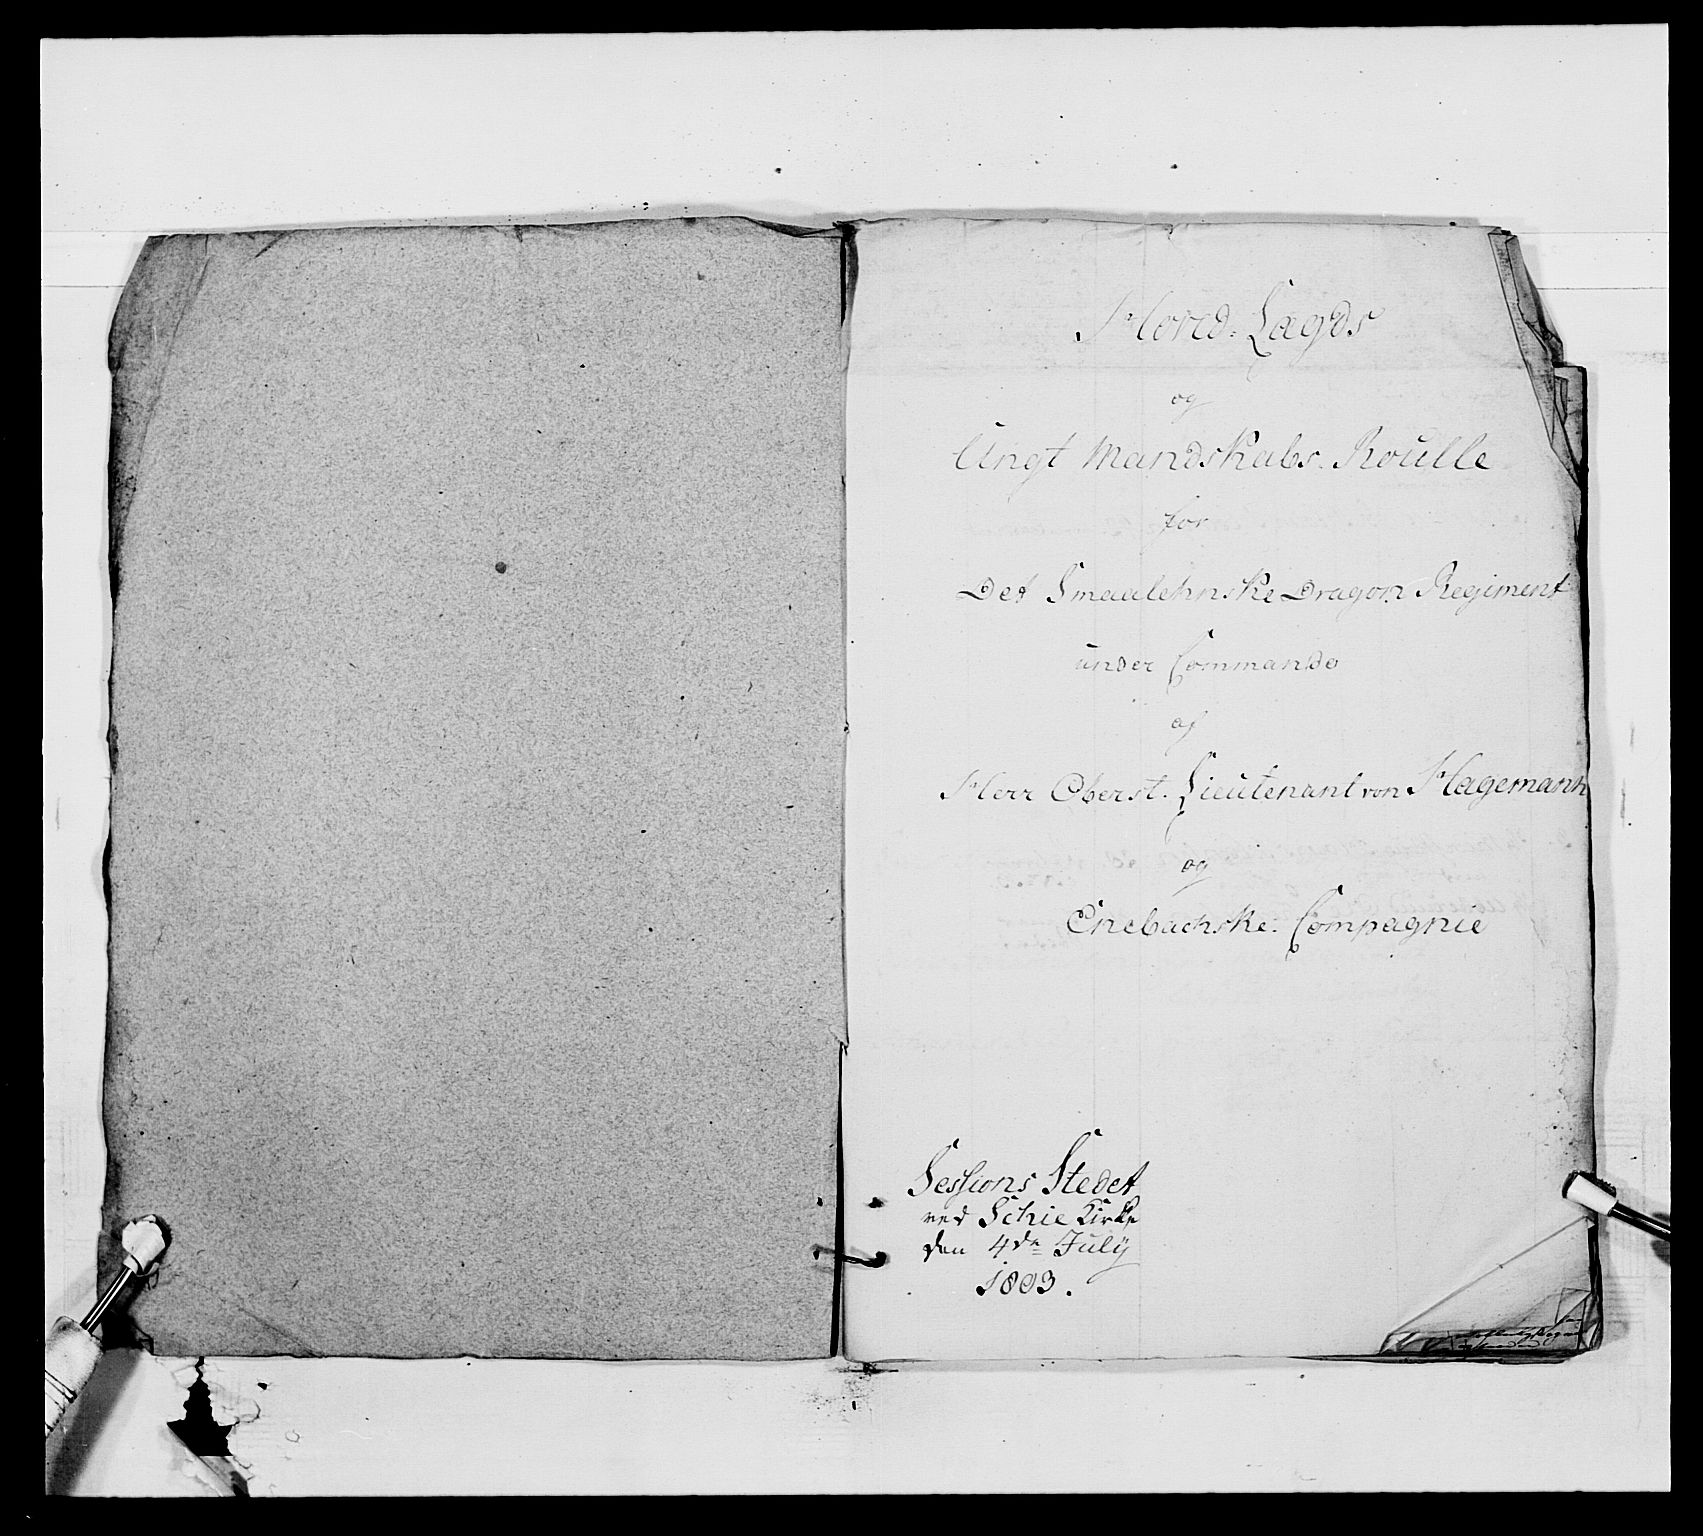 Hoved: Lagds
og
Ungt Mandskabs. Roulle
for
Det Smaalehnske Dragon Regiment
under Commando
af
Herr Oberst. Lieutenant von Hagemann
og
Enebachske. Compagnie
Sessions Stedet
ved Schie Kirke
den 4de July
1803.